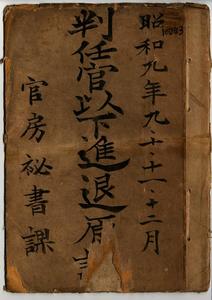 昭和九年九・十・十一・十二月
判任官以下進退原書
官房秘書課